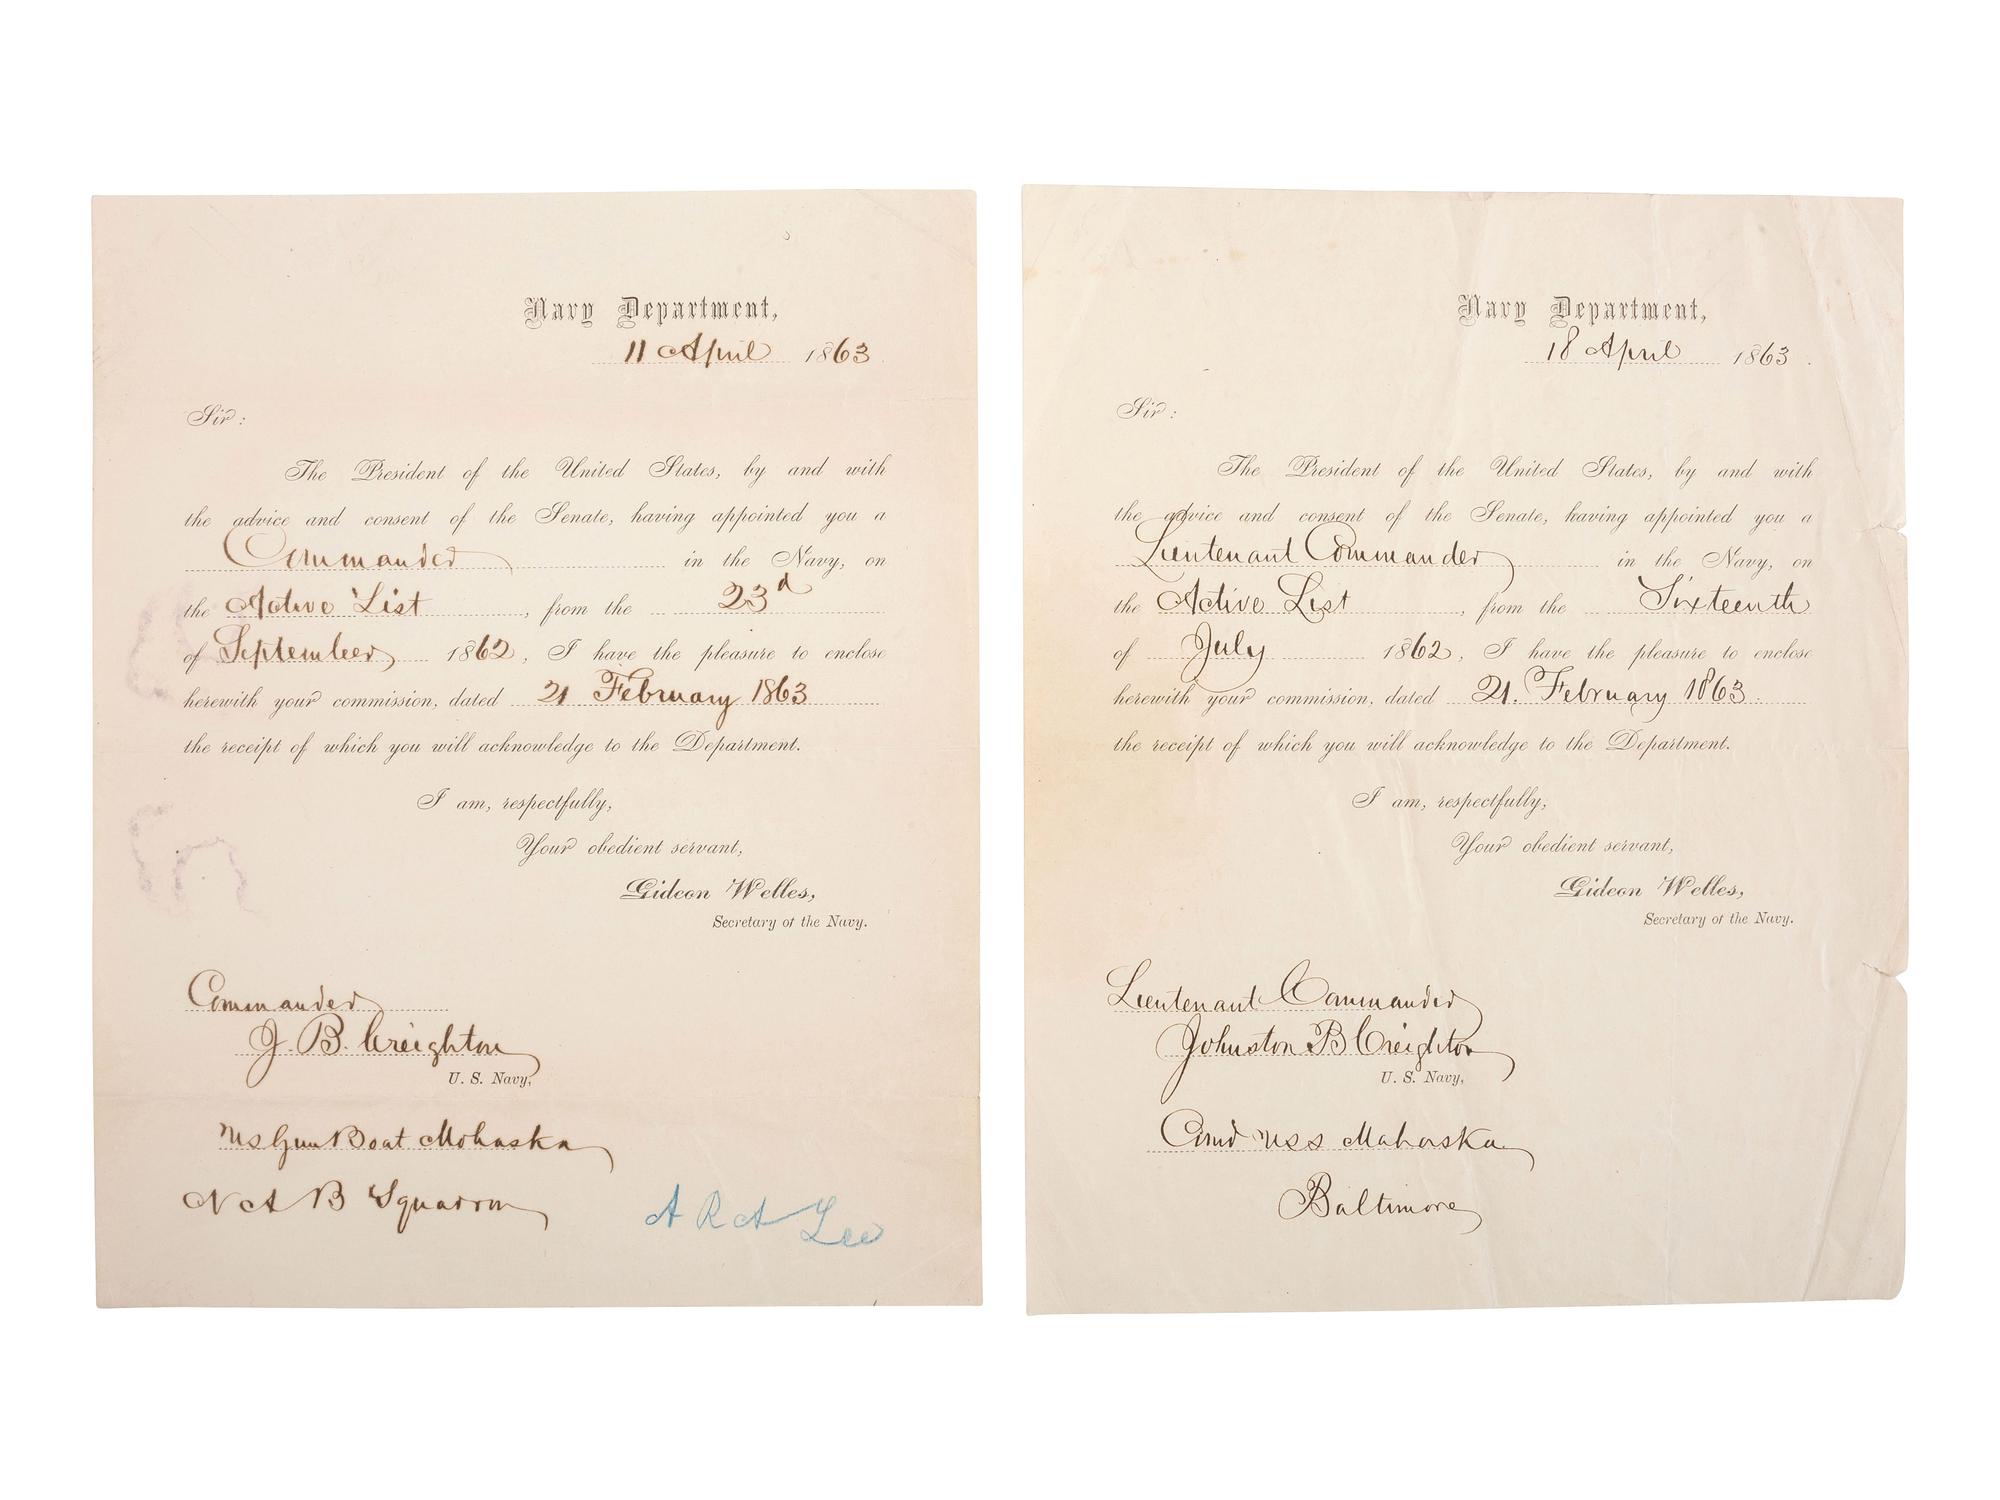 Navy Department,
11 April 1863
Sir:
The President of the United States, by and with
the advice and consent of the Senate, having appointed you a
Commander in the Navy, on
the Active List, from the 23d
of September 1862, I have the pleasure to enclose
herewith your commission, dated 21 February 1863
the receipt of which you will acknowledge to the Department.
I am, respectfully,
Your obedient servant,
Gideon Welles,
Secretary of the Navy.
Commander
J. B. Creighton
U. S. Navy,
US Gun Boat Mohaska
N A B Squadron
A R A Lee
Navy Department,
18 April 1863.
Sir:
The President of the United States, by and with
the advice and consent of the Senate, having appointed you a
Lieutenant Commander in the Navy, on
the Active List, from the Sixteenth
of July 1862, I have the pleasure to enclose
herewith your commission, dated 21. February 1863.
the receipt of which you will acknowledge to the Department.
I am, respectfully,
Your obedient servant,
Gideon Welles,
Secretary of the Navy.
Lieutenant Commander
Johnston B Creighton
U. S. Navy,
Comd USS Mahaska
Baltimore